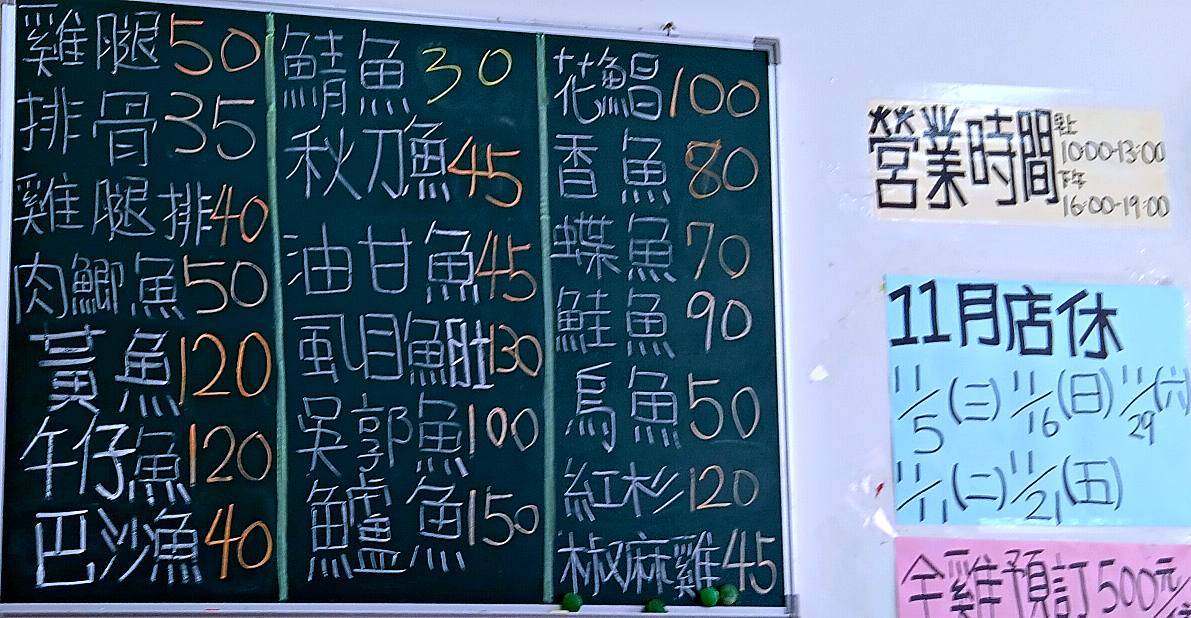 雞腿50
排骨35
雞腿排40
肉鯽魚50
黃魚120
午仔魚120
巴沙魚40
鯖魚30
秋刀魚45
油甘魚45
虱目魚肚130
吳郭魚100
鱸魚150
花鯧100
香魚80
蝶魚70
鮭魚90
烏魚50
紅杉120
椒麻雞45
營業時間
早上
10:00-13:00
下午
16:00-19:00
11月店休
11/5(三) 11/16(日) 11/29(六)
11/11(二) 11/21(五)
全雞預訂500元/